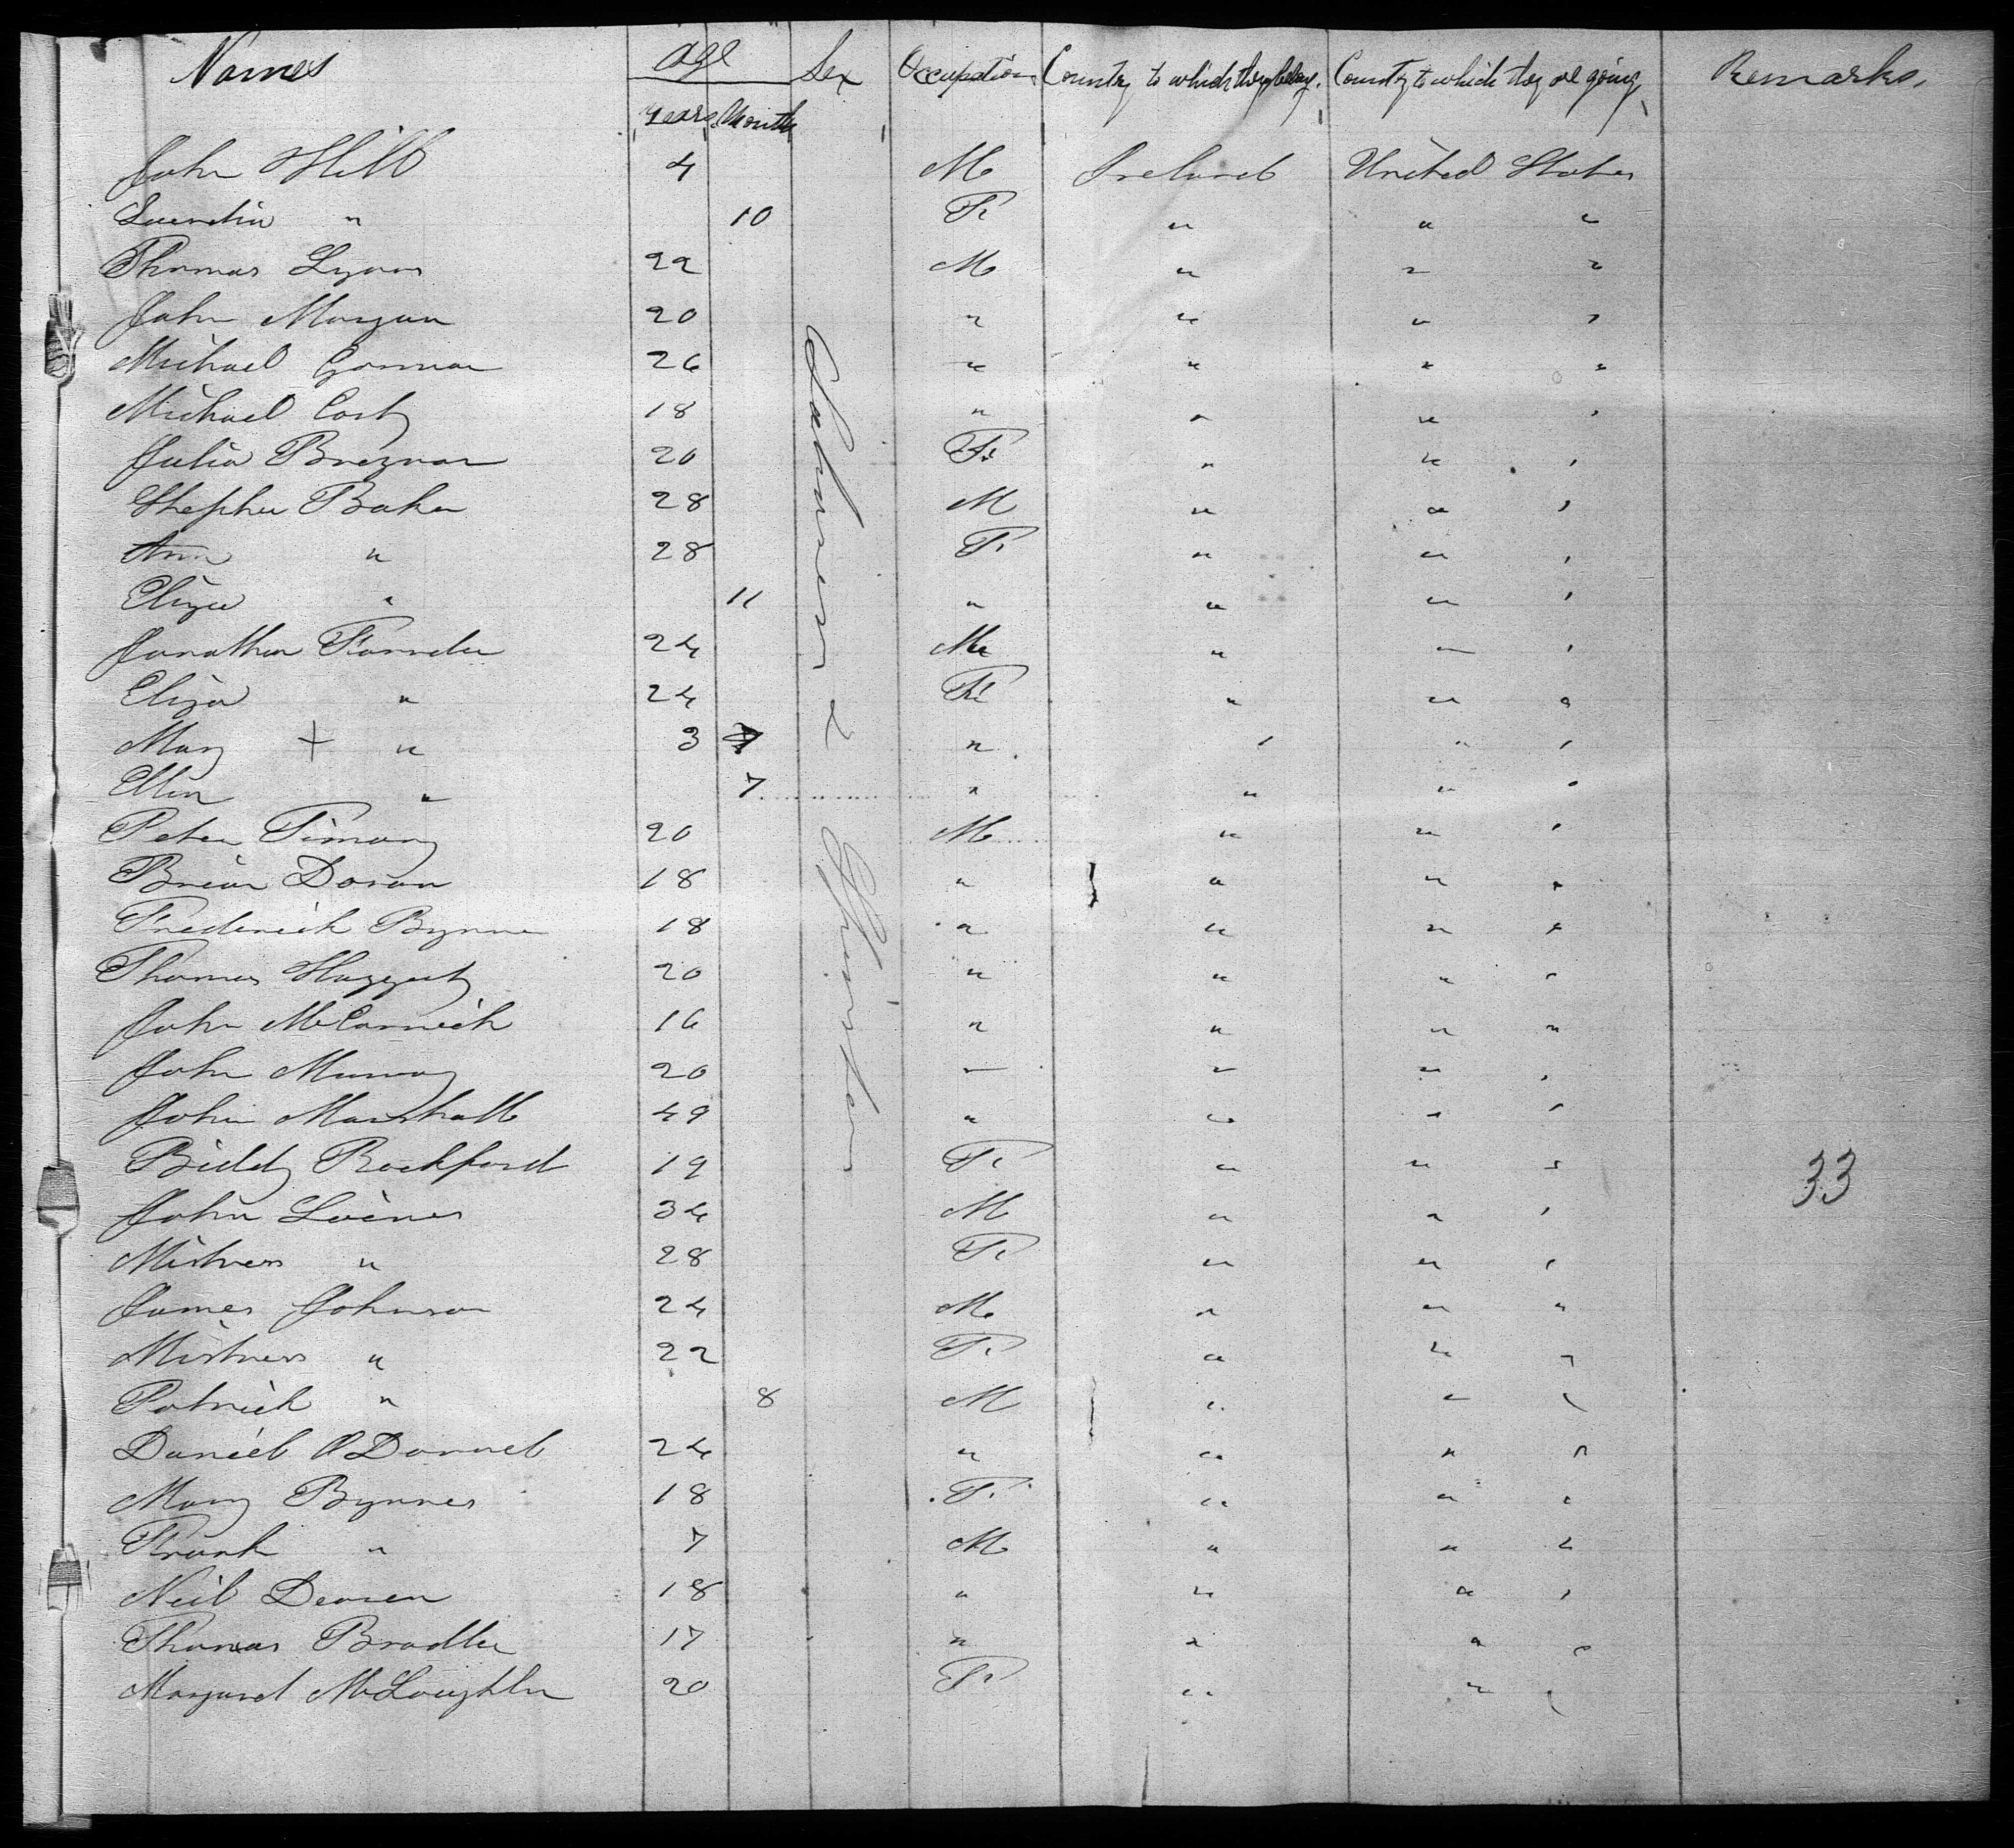 Names age Sex Occupation Country to which they belong. Country to which they are going Remarks.
Years Month
John Hill 4 M Ireland United States
" 10 F " " "
Thomas Lyons 22 M " " "
John Morgan 20 " " " "
Michael Gorman 26 " " " "
Michael Cost 18 " " " "
Julia Breznan 20 F " " "
Stephen Baker 28 M " " "
Ann " 28 F " " "
Eliza " 11 " " " "
Jonathan 24 M " " "
Eliza " 24 F " " "
Mary + " 3 " " " "
Ellen " 7 " " " "
Peter Timony 20 M " " "
Brian Doran 18 " " " "
Frederick Byrne 18 " " " "
Thomas Haggerty 20 " " " "
John McCormick 16 " " " "
John Murray 20 " " " "
John Marshall 49 " " " "
Biddy Rockford 19 F " " " 33
John Loines 34 M " " "
Mistress " 28 F " " "
James Johnson 24 M " " "
Mistress " 22 F " " "
Patrick " 8 M " " "
Daniel O Donnel 24 " " " "
Mary Byrnes 18 F " " "
Frank " 7 M " " "
Neil 18 " " " "
Thomas Bradley 17 " " " "
Margaret McLoughlin 20 F " " "
Labourers & Spinsters